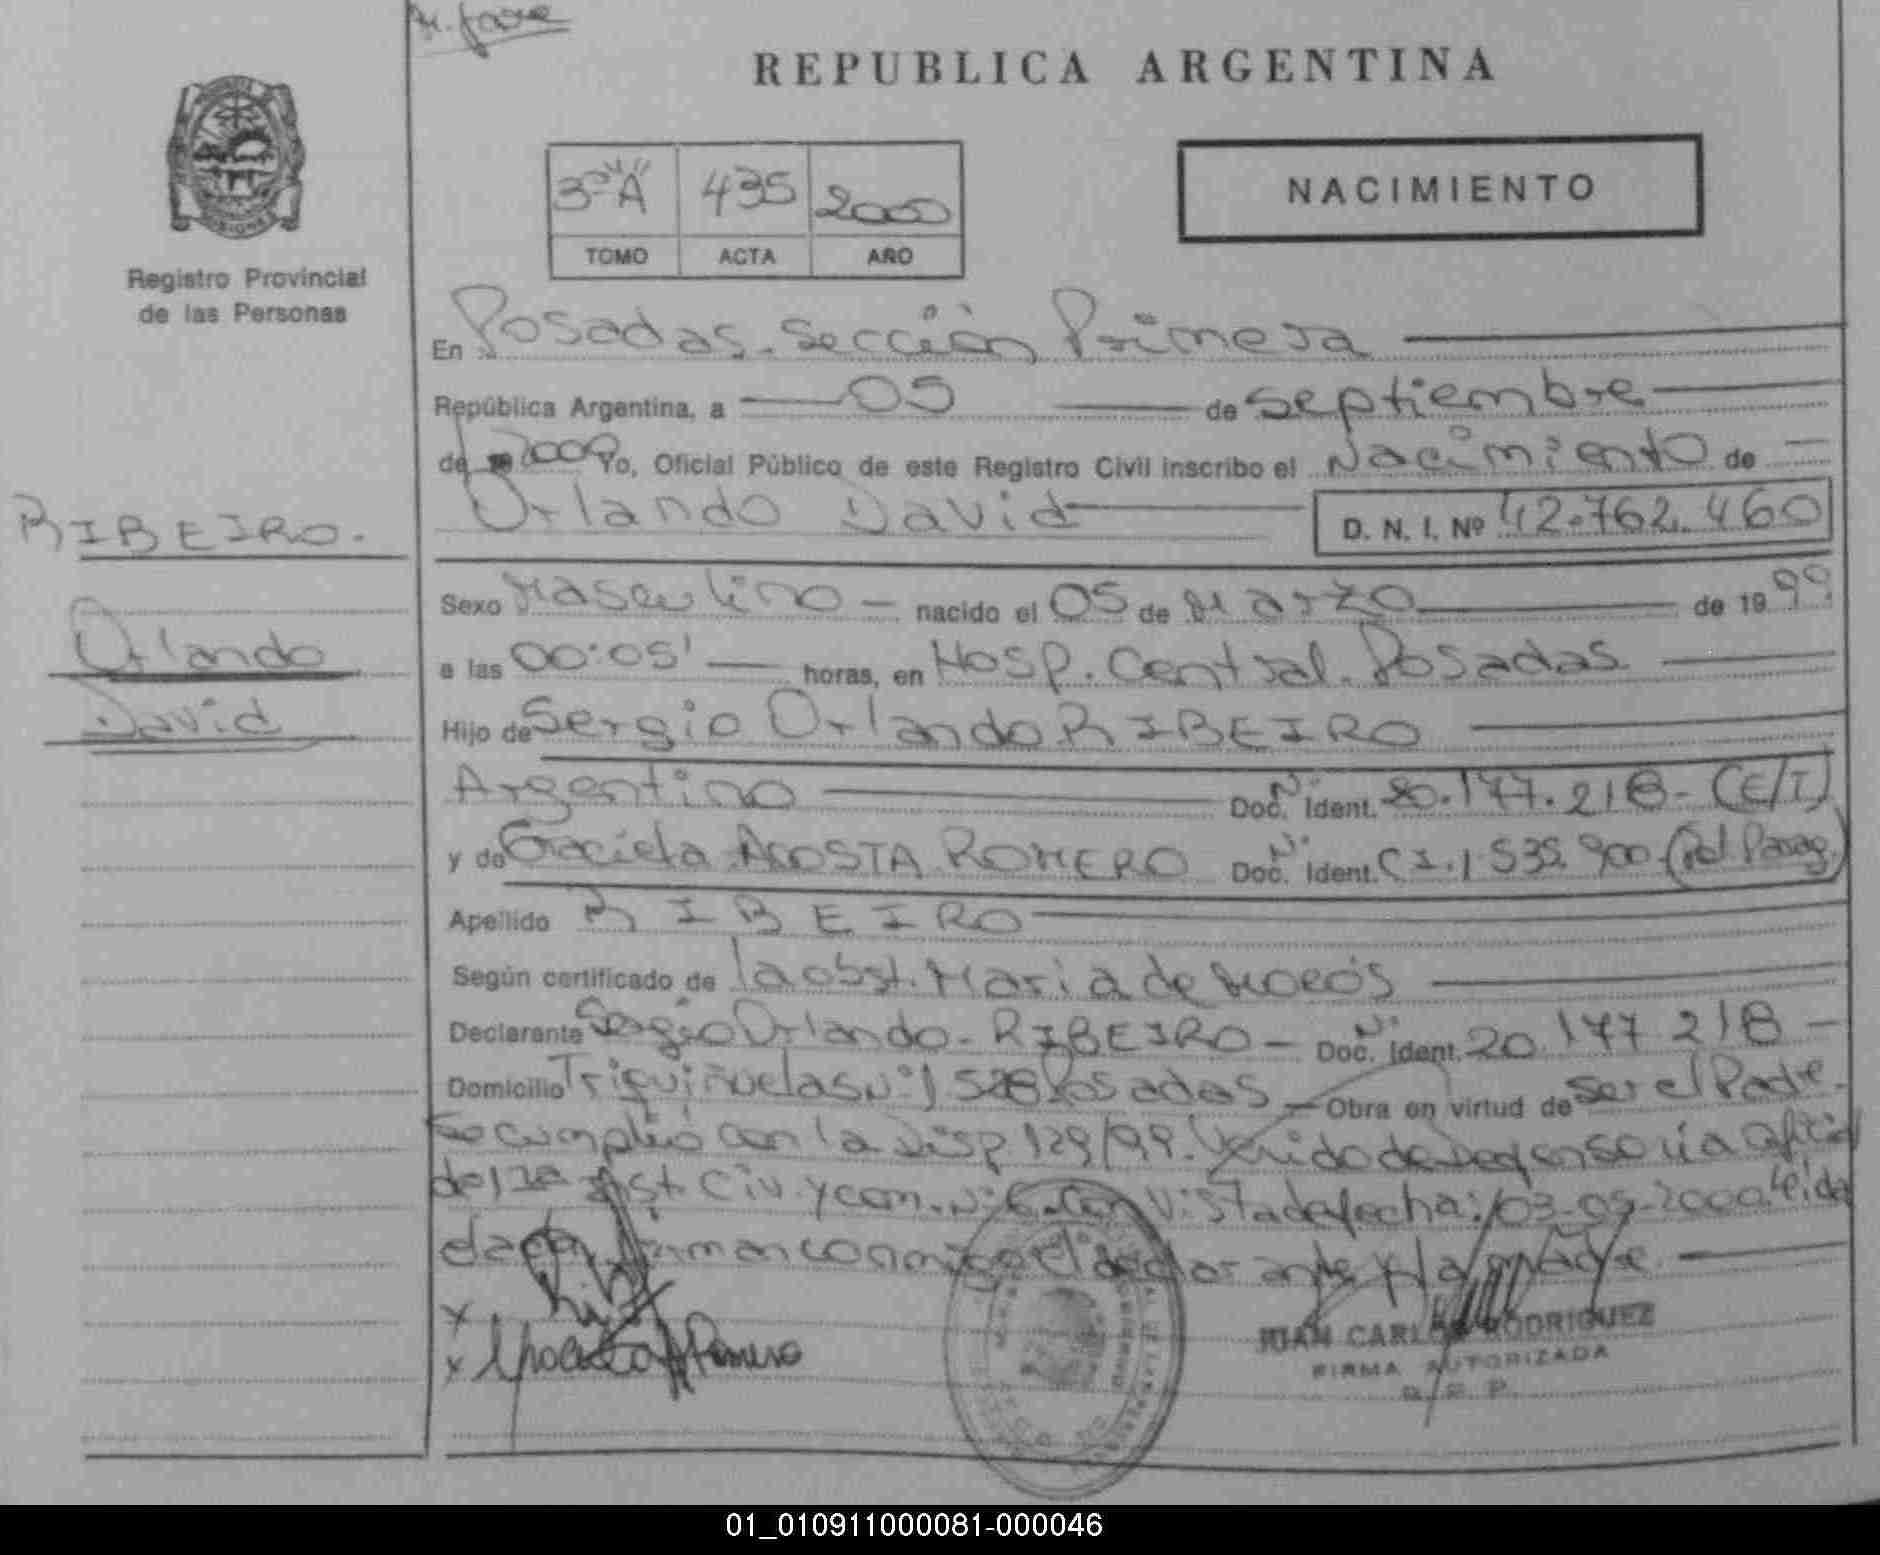 REPUBLICA ARGENTINA
NACIMIENTO
3º "A" 435 2000
TOMO ACTA AÑO
Registro Provincial
de las Personas
En Posadas. Sección Primera
República Argentina, a 05 de septiembre
de 2000 Yo, Oficial Público de este Registro Civil inscribo el Nacimiento de
Orlando David D. N. I. Nº 42.762.460
RIBEIRO.
Orlando
David
Sexo Masculino nacido el 05 de Marzo de 1999
a las 00:05' horas, en Hosp. Central. Posadas
Hijo de Sergio Orlando RIBEIRO
Argentino Doc. Nº Ident. 20.177.218- (E/T)
y de Graciela ACOSTA ROMERO Doc. Nº Ident. C.I. 1.535.900 (Pol. Parag.)
Apellido RIBEIRO
Según certificado de la obst. Maria de
Declarante Sergio Orlando - RIBEIRO - Doc. Nº Ident. 20.177.218 -
Domicilio Triquiñuelas Nº 1528 Posadas Obra en virtud de ser el Padre.
Se cumplió con la Disp 129/99. de Defensoría
de 1ra Inst. Civ. y com. Nº 6. Con Vista de fecha: 03-05-2000. Leída
el acta firman conmigo el declarante y la madre.
x
x Acosta Romero
JUAN CARLOS RODRIGUEZ
FIRMA AUTORIZADA
R. P. P.
01_010911000081-000046